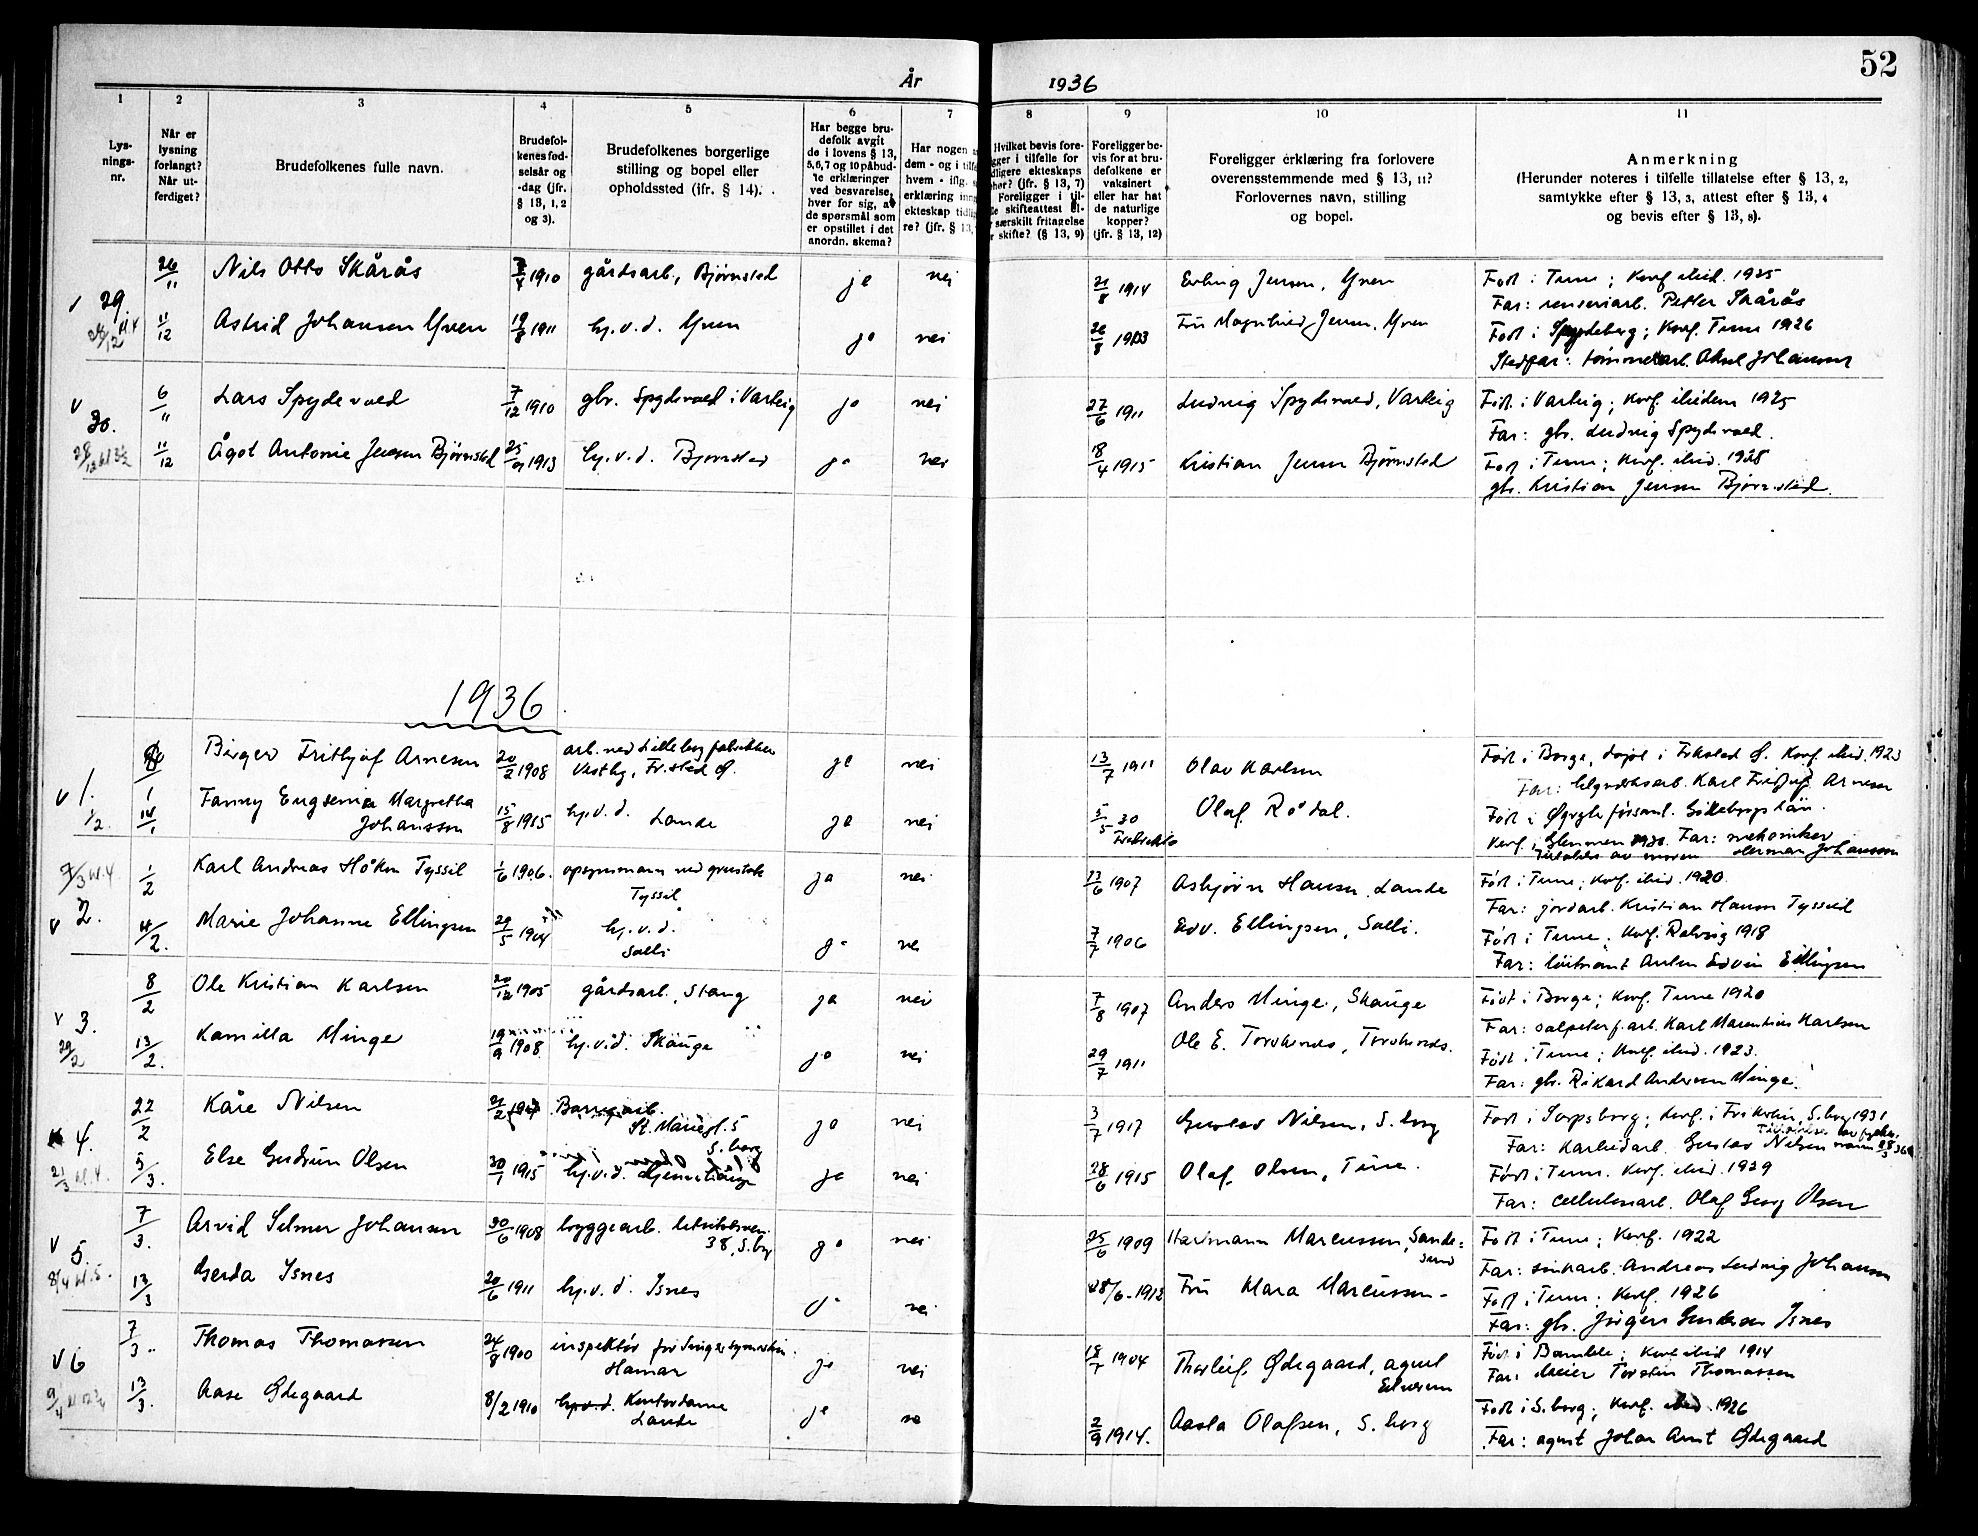 52
År 1936
1 2 3 4 5 6 7 8 9 10 11
Lys-
nings-
nr.
Når er
lysning
forlangt?
Når ut-
ferdiget?
Brudefolkenes fulle navn.
Brudefol-
kenes fød-
selsår og
-dag (jfr.
§ 13, 1, 2
og 3).
Brudefolkenes borgerlige
stilling og bopel eller
opholdssted (jfr. § 14).
Har begge bru-
defolk avgit
de i lovens § 13,
5, 6, 7 og 10 påbud-
te erklæringer
ved besvarelse,
hver for sig, av
de spørsmål som
er opstillet i det
anordn. skema?
Har nogen
dem - og i
hvem - iflg.
erklæring
ekteskap
re? (jfr. § 13,
Hvilket bevis fore-
i tilfelle for
ekteskaps
(jfr. § 13, 7)
Foreligger i til-
skifteattest el-
særskilt fritagelse
skifte? (§ 13, 9)
Foreligger be-
vis for at bru-
defolkene er
vaksinert
eller har hat
de naturlige
kopper?
(jfr. § 13, 12)
Foreligger erklæring fra forlovere
overensstemmende med § 13, 11?
Forlovernes navn, stilling
og bopel.
Anmerkning
(Herunder noteres i tilfelle tillatelse efter § 13, 2,
samtykke efter § 13, 3, attest efter § 13, 4
og bevis efter § 13, 8).
29 26/11 Nils Otto Skårås 1910 gårdsarb., Bjørnstad ja nei 21/8 1914 Erling Jensen, Yven Født i Tune; konf. ibid. 1925
Far: renseriarb. Petter Skårås
11/12 Astrid Johansen Yven 19/8 1911 hj.v.d. Yven ja nei 26/8 Fru Magnhild Jensen, Yven Født i Spydeberg; konf. Tune 1926
Stedfar: tømmerarb. Aksel Johansen
30. 6/11 Lars Spydevold 7/12 1910 gbr. Spydevold i Varteig ja nei 27/6 1911 Ludvig Spydevold, Varteig Født i Varteig; konf. ibidem 1925
Far: gbr. Ludvig Spydevold.
11/12 Ågot Antonie Jensen Bjørnstad 1913 hj.v.d. Bjørnstad ja nei 18/4 1915 Kristian Jensen Bjørnstad Født i Tune; konf. ibid. 1928
gbr. Kristian Jensen Bjørnstad.
1936
1. Birger Fritjof Arnesen 20/2 1908 arb. ved Lilleborg fabrikker
Vestby, Fr.stad Ø. ja nei 13/7 1911 Olav Karlsen Født i Borge, døpt i Frkstad Ø. Konf. ibid. 1923
Far: Karl Fritjof Arnesen
1/2. 14/1 Fanny Eugenie Margretha
Johansson 15/8 1915 hj.v.d. Lande ja nei 5/5 30
Fredrikstad Olaf Rødal. Født i Øgryte församl. Göteborgs län.
Konf. i Glemmen 1930. Far: mekaniker
Herman Johansson
2. 1/2 Karl Andreas Håkon Tyssil 1/6 1906. opsynsmann ved grustak
Tyssil ja nei 13/6 1907 Asbjørn Hansen, Lande Født i Tune; konf. ibid. 1920.
Far: jordarb. Kristian Hansen Tyssil
4/2. Marie Johanne Ellingsen 29/5 1904 hj.v.d.
Solli ja nei 7/7 1906 Edv. Ellingsen, Solli. Født i Tune; konf. Rolvsøy 1918
Far: løitnant Anton Edvin Ellingsen
3. 8/2 Ole Kristian Karlsen 20/12 1905 gårdsarb., Stang ja nei 7/8 1907 Anders Minge, Skauge Født i Borge; konf. Tune 1920
Far: salpeterf.arb. Karl Marentius Karlsen
29/2 13/2. Kamilla Minge 19/9 1908 hj.v.d. Skauge ja nei 29/7 1911 Ole E. Født i Tune; konf. ibid. 1923.
Far: gbr. Rikard Andersen Minge.
4. 22/2 Kåre Nilsen 21/2
St. Mariegt. 5
S.borg ja nei 3/7 1917 Gustav Nilsen, S.borg Født i Sarpsborg; konf. i Frikirken, S.borg 1931
Far: karbidarb. Gustav Nilsen
5/3. Else Gudrun Olsen 30/1 1915 hj.v.d. ja nei 28/6 1915 Olaf Olsen, Tune. Født i Tune. Konf. ibid. 1929
Far: cellulosearb. Olaf Georg Olsen
5. 7/3. Arvid Selmer Johansen 30/6 1908 byggearb.
38, S.bg ja nei 25/6 1909 Harmann Marcussen, Sande-
sund Født i Tune; konf. 1922
Far: sinkarb. Andreas Ludvig Johansen
8/4 kl. 5. 13/3 Gerda Isnes 20/6 1911 hj.v.d. Isnes nei 28/6-1912 Fru Mara Marcussen- Født i Tune; konf. 1926
Far: gbr. Jørgen Gundersen Isnes
6 7/3. Thomas Thomassen 24/8 1900 inspektør for Singer symaskin.
Hamar ja nei 18/7 1904 Thorleif Ødegaard, agent Født i Bamble; konf. ibid 1914
Far: Meier Torstein Thomassen
13/3. Aase Ødegaard 8/2 1910 hj.v.d. Kontordame
Lande ja 2/9 1914. Aasta Olafsen, S.borg Født i S.borg; konf. ibid. 1926
Far: agent Johan Arnt Ødegaard